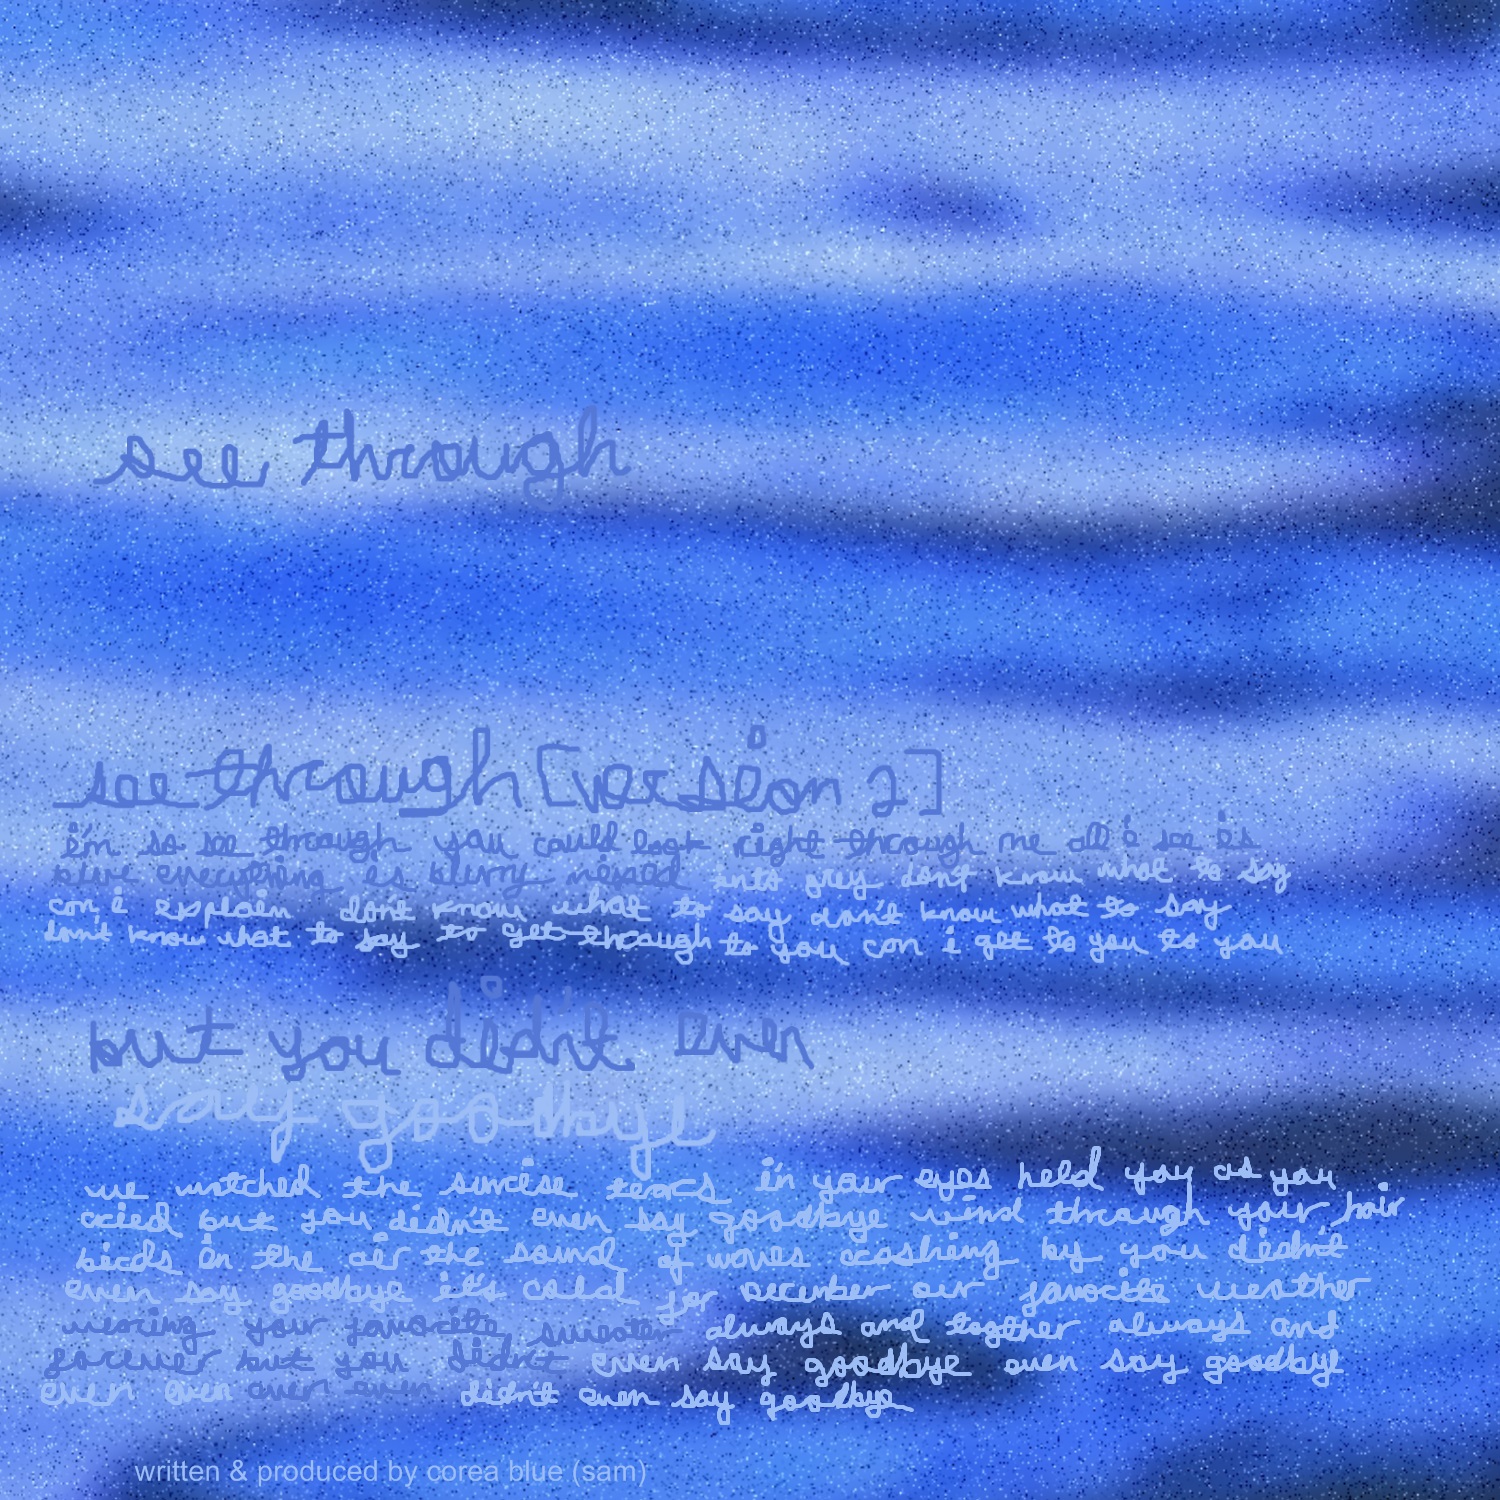 see through
see through [version 2]
i'm so see through you could look right through me all i see is
blue everything is blurry mixed into grey don't know what to say
can i explain don't know what to say don't know what to say
don't know what to say to get through to you can i get to you to you
but you didn't even
say goodbye
we watched the sunrise tears in your eyes held you as you
cried but you didn't even say goodbye wind through your hair
birds in the air the sound of waves crashing by you didn't
even say goodbye it's cold for december our favorite weather
wearing your favorite sweater always and together always and
forever but you didn't even say goodbye even say goodbye
even even even even didn't even say goodbye
written & produced by corea blue (sam)